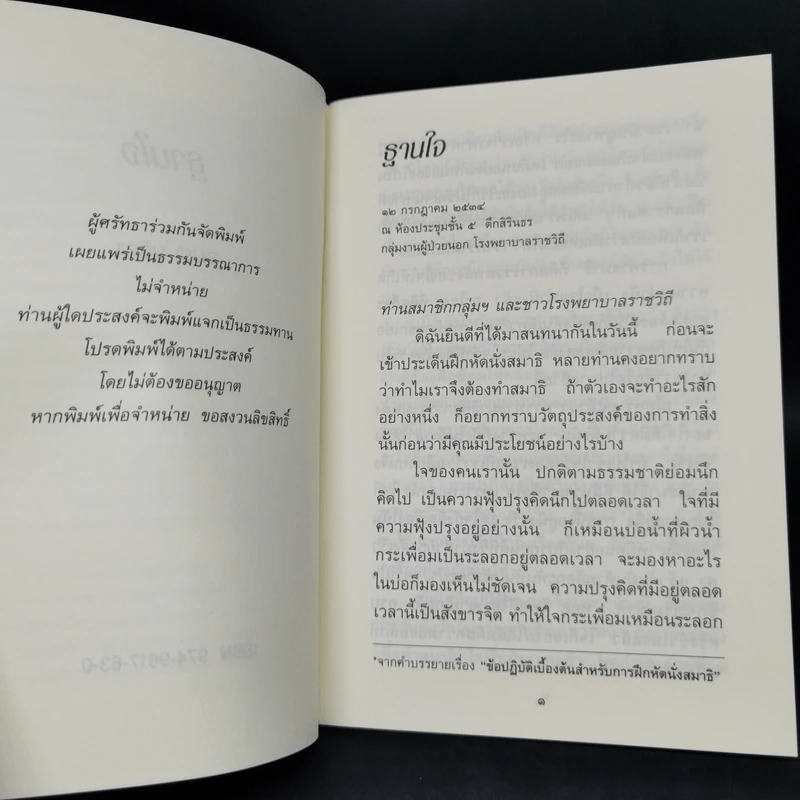 ผู้ศรัทธาร่วมกันจัดพิมพ์
เผยแพร่เป็นธรรมบรรณาการ
ไม่จำหน่าย
ท่านผู้ใดประสงค์จะพิมพ์แจกเป็นธรรมทาน
โปรดพิมพ์ได้ตามประสงค์
โดยไม่ต้องขออนุญาต
หากพิมพ์เพื่อจำหน่าย ขอสงวนลิขสิทธิ์
ฐานใจ
๑๒ กรกฎาคม ๒๕๓๔
ณ ห้องประชุมชั้น ๕ ตึกสิรินธร
กลุ่มงานผู้ป่วยนอก โรงพยาบาลราชวิถี
ท่านสมาชิกกลุ่มฯ และชาวโรงพยาบาลราชวิถี
ดิฉันยินดีที่ได้มาสนทนากันในวันนี้ ก่อนจะ
เข้าประเด็นฝึกหัดนั่งสมาธิ หลายท่านคงอยากทราบ
ว่าทำไมเราจึงต้องทำสมาธิ ถ้าตัวเองจะทำอะไรสัก
อย่างหนึ่ง ก็อยากทราบวัตถุประสงค์ของการทำสิ่ง
นั้นก่อนว่ามีคุณมีประโยชน์อย่างไรบ้าง
ใจของคนเรานั้น ปกติตามธรรมชาติย่อมนึก
คิดไป เป็นความฟุ้งปรุงคิดนึกไปตลอดเวลา ใจที่มี
ความฟุ้งปรุงอยู่อย่างนั้น ก็เหมือนบ่อน้ำที่ผิวน้ำ
กระเพื่อมเป็นระลอกอยู่ตลอดเวลา จะมองหาอะไร
ในบ่อก็มองเห็นไม่ชัดเจน ความปรุงคิดที่มีอยู่ตลอด
เวลานี้เป็นสังขารจิต ทำให้ใจกระเพื่อมเหมือนระลอก
*จากคำบรรยายเรื่อง "ข้อปฏิบัติเบื้องต้นสำหรับการฝึกหัดนั่งสมาธิ"
๑